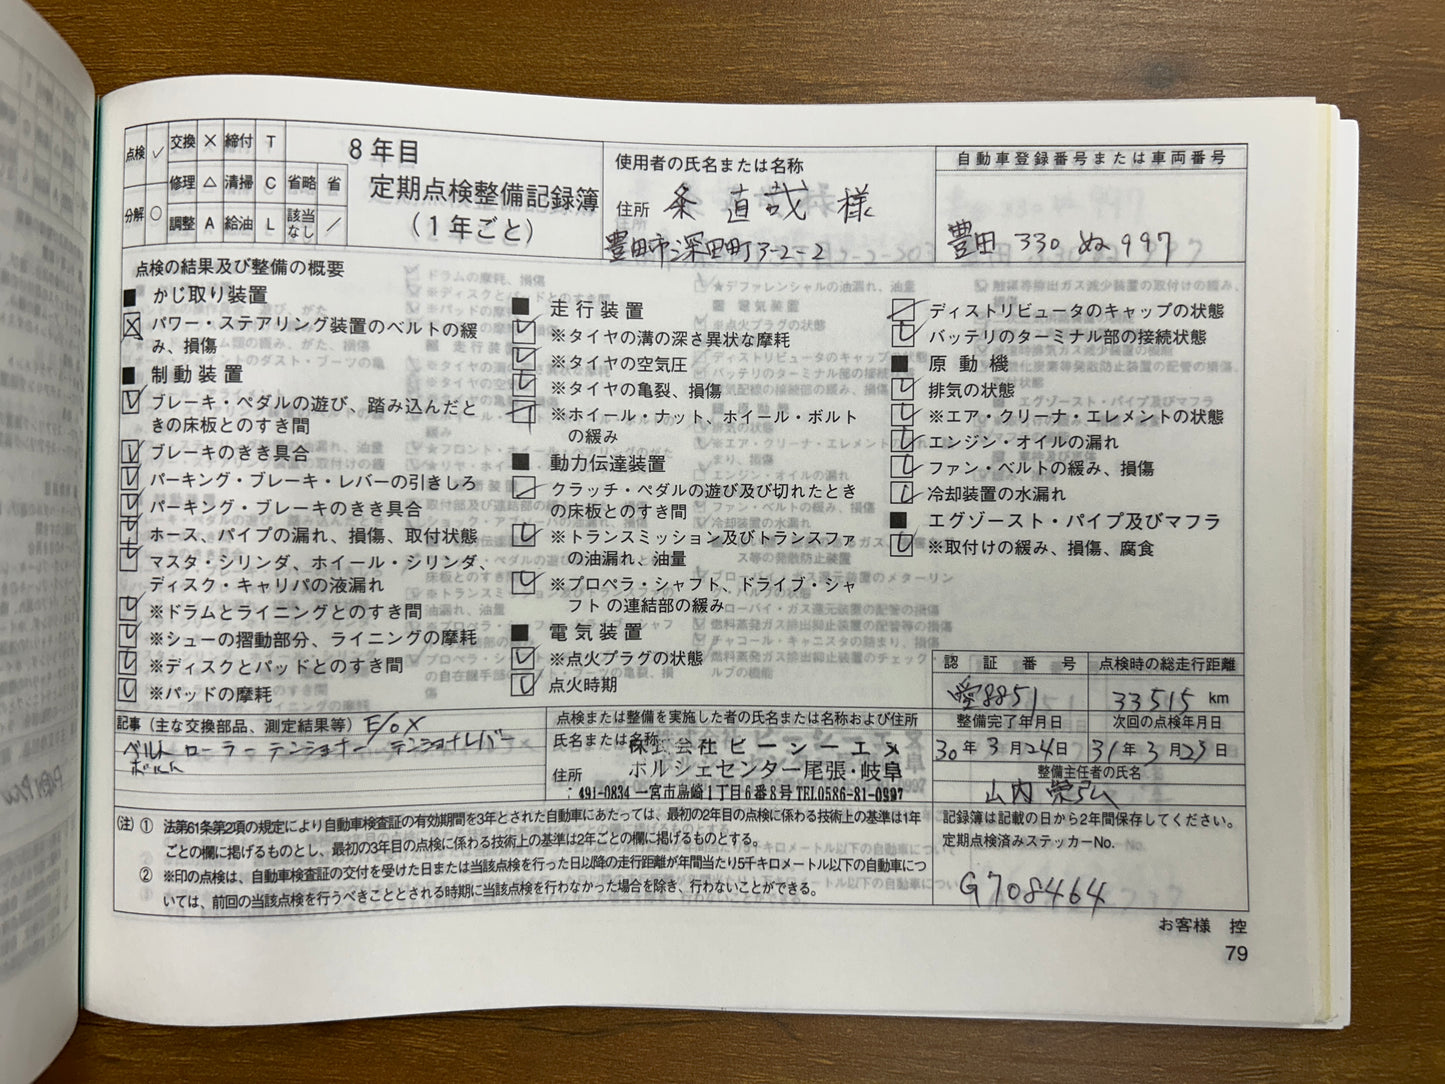 点検 ✓ 交換 × 締付 T
修理 △ 清掃 C 省略 省
分解 ○ 調整 A 給油 L 該当なし ／
8年目
定期点検整備記録簿
（1年ごと）
使用者の氏名または名称
条 直哉 様
住所
豊田市深田町3-2-2
自動車登録番号または車両番号
豊田 330 ぬ 997
点検の結果及び整備の概要
■ かじ取り装置
パワー・ステアリング装置のベルトの緩
み、損傷
■ 制動装置
ブレーキ・ペダルの遊び、踏み込んだと
きの床板とのすき間
ブレーキのきき具合
パーキング・ブレーキ・レバーの引きしろ
パーキング・ブレーキのきき具合
ホース、パイプの漏れ、損傷、取付状態
マスタ・シリンダ、ホイール・シリンダ、
ディスク・キャリパの液漏れ
※ドラムとライニングとのすき間
※シューの摺動部分、ライニングの摩耗
※ディスクとパッドとのすき間
※パッドの摩耗
■ 走行装置
※タイヤの溝の深さ異状な摩耗
※タイヤの空気圧
※タイヤの亀裂、損傷
※ホイール・ナット、ホイール・ボルト
の緩み
■ 動力伝達装置
クラッチ・ペダルの遊び及び切れたとき
の床板とのすき間
※トランスミッション及びトランスファ
の油漏れ、油量
※プロペラ・シャフト、ドライブ・シャ
フトの連結部の緩み
■ 電気装置
※点火プラグの状態
点火時期
ディストリビュータのキャップの状態
バッテリのターミナル部の接続状態
■ 原動機
排気の状態
※エア・クリーナ・エレメントの状態
エンジン・オイルの漏れ
ファン・ベルトの緩み、損傷
冷却装置の水漏れ
■ エグゾースト・パイプ及びマフラ
※取付けの緩み、損傷、腐食
認証番号 点検時の総走行距離
愛8851 33515 km
整備完了年月日 次回の点検年月日
30年3月24日 31年3月23日
整備主任者の氏名
山内 栄弘
記事（主な交換部品、測定結果等） E/O X
ベルト ローラー テンショナー テンショナレバー
ボルト
点検または整備を実施した者の氏名または名称および住所
氏名または名称
株式会社ビーシーエス
ポルシェセンター尾張・岐阜
住所
491-0834 一宮市島崎1丁目6番8号 TEL0586-81-0997
記録簿は記載の日から2年間保存してください。
定期点検済みステッカーNo.
G708464
（注）① 法第61条第2項の規定により自動車検査証の有効期間を3年とされた自動車にあたっては、最初の2年目の点検に係わる技術上の基準は1年
ごとの欄に掲げるものとし、最初の3年目の点検に係わる技術上の基準は2年ごとの欄に掲げるものとする。
② ※印の点検は、自動車検査証の交付を受けた日または当該点検を行った日以降の走行距離が年間当たり5千キロメートル以下の自動車につ
いては、前回の当該点検を行うべきこととされる時期に当該点検を行わなかった場合を除き、行わないことができる。
お客様 控
79